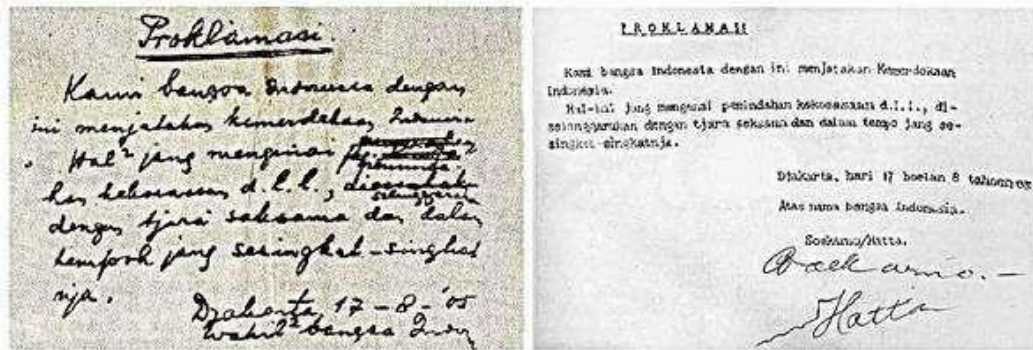 Proklamasi.
Kami bangsa Indonesia dengan
ini menjatakan kemerdekaan Indonesia
. Hal² jang mengenai
kan kekoeasaan d.l.l.,
dengan tjara saksama dan dalam
tempoh jang sesingkat-singkat
nja.
Djakarta, 17 - 8 - '05
Wakil² bangsa Indon
PROKLAMASI
Kami bangsa Indonesia dengan ini menjatakan Kemerdekaan
Indonesia.
Hal-hal jang mengenai pemindahan kekoeasaan d.l.l., di-
selenggarakan dengan tjara seksama dan dalam tempo jang se-
singkat-singkatnja.
Djakarta, hari 17 boelan 8 tahoen 05
Atas nama bangsa Indonesia.
Soekarno/Hatta.
Soekarno.-
Hatta